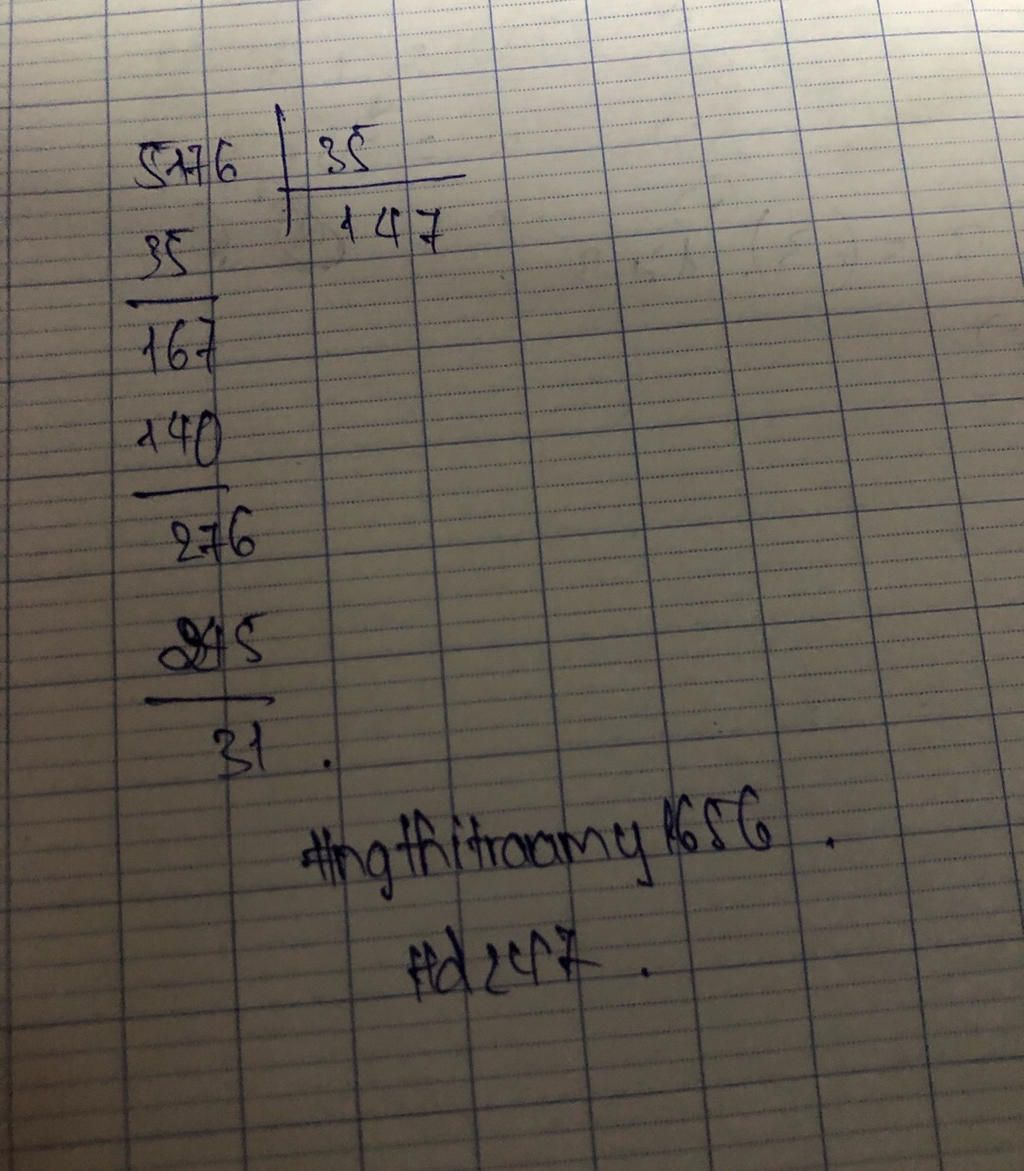 5176 35
147
35
167
140
276
245
31 .
#ngthitraamy1656 .
#d247 .